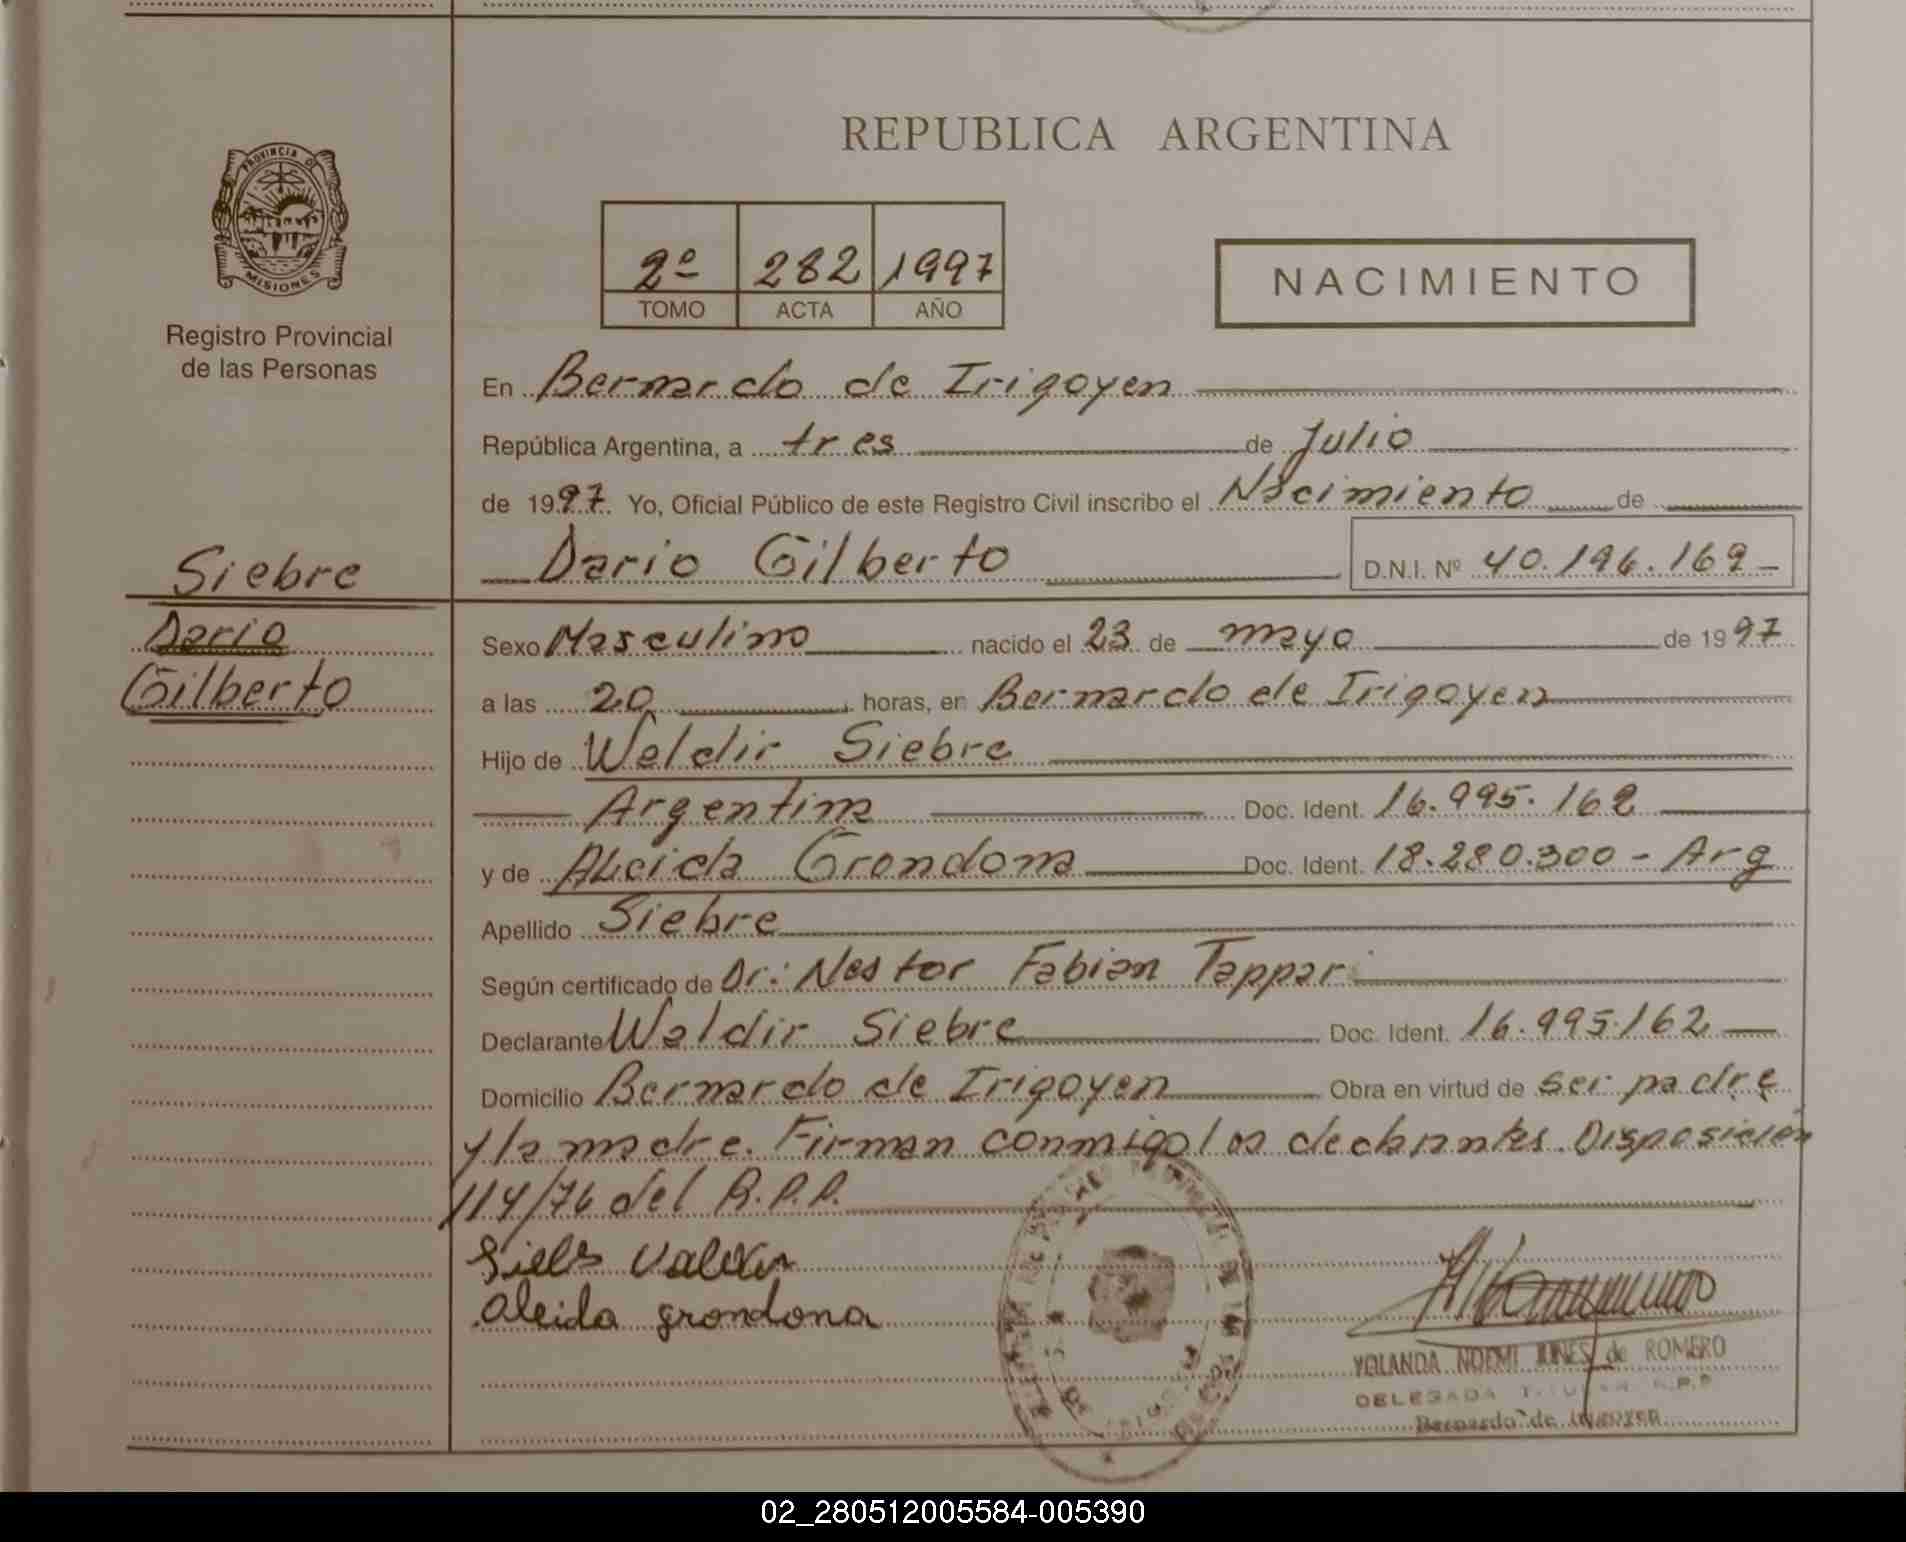 PROVINCIA DE
MISIONES
Registro Provincial
de las Personas
Siebre
Dario
Gilberto
REPUBLICA ARGENTINA
2º 282 1997
TOMO ACTA AÑO
NACIMIENTO
En Bernardo de Irigoyen
República Argentina, a tres de Julio
de 1997. Yo, Oficial Público de este Registro Civil inscribo el Nacimiento de
Dario Gilberto D.N.I. Nº 40.196.169
Sexo Masculino nacido el 23 de mayo de 1997
a las 20 horas, en Bernardo de Irigoyen
Hijo de Waldir Siebre
Argentina Doc. Ident. 16.995.162
y de Aleida Grondona Doc. Ident. 18.280.300 - Arg
Apellido Siebre
Según certificado de Dr: Nestor Fabian Tappari
Declarante Waldir Siebre Doc. Ident. 16.995.162
Domicilio Bernardo de Irigoyen Obra en virtud de ser padre
y la madre. Firman conmigo los declarantes. Disposición
114/76 del R.P.P.
Aleida grondona
YOLANDA NOEMI de ROMERO
DELEGADA TITULAR R.P.P
Bernardo de Irigoyen
02_280512005584-005390